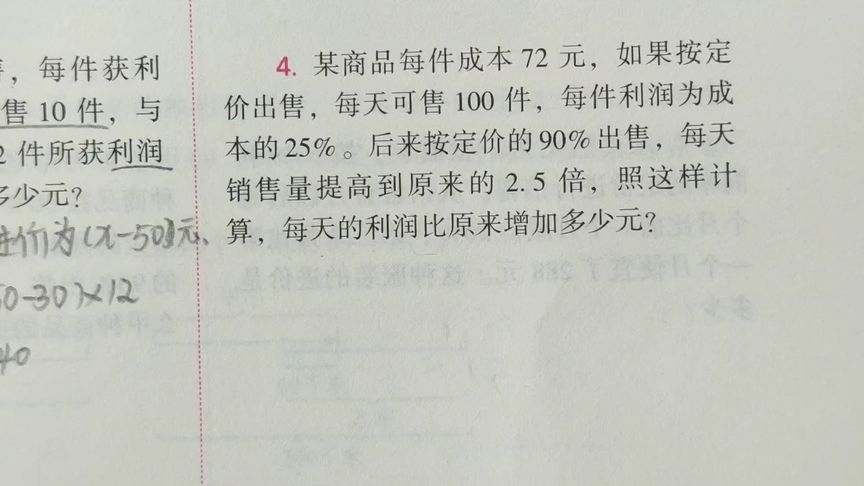 每件获利
售 10 件，与
件所获利润
多少元？
价为(x-50)元、
0-30)×12
40
4. 某商品每件成本 72 元，如果按定
价出售，每天可售 100 件，每件利润为成
本的 25%。后来按定价的 90% 出售，每天
销售量提高到原来的 2.5 倍，照这样计
算，每天的利润比原来增加多少元？